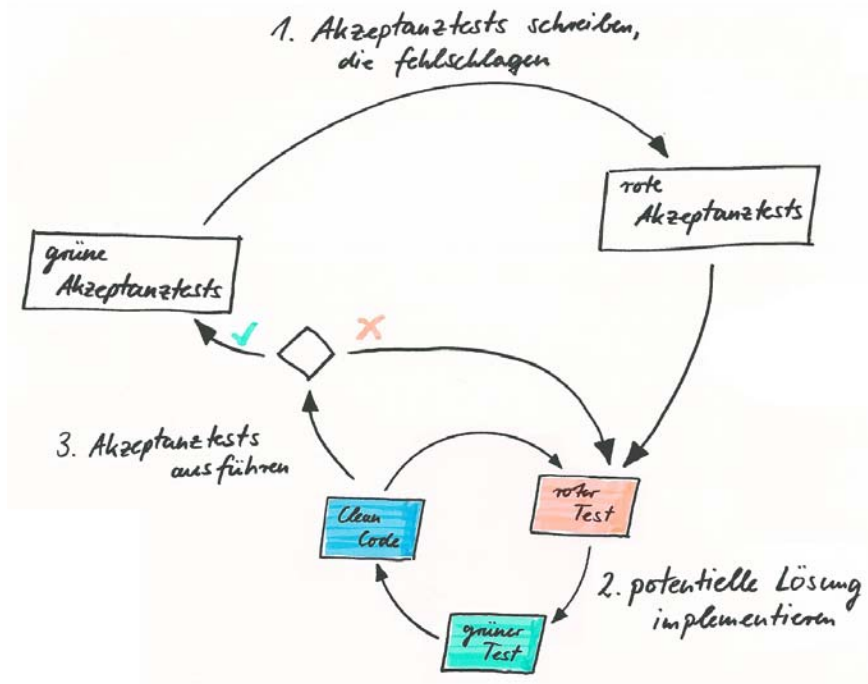 1. Akzeptanztests schreiben,
die fehlschlagen
rote
Akzeptanztests
grüne
Akzeptanztests
3. Akzeptanztests
ausführen
Clean
Code
roter
Test
2. potentielle Lösung
implementieren
grüner
Test